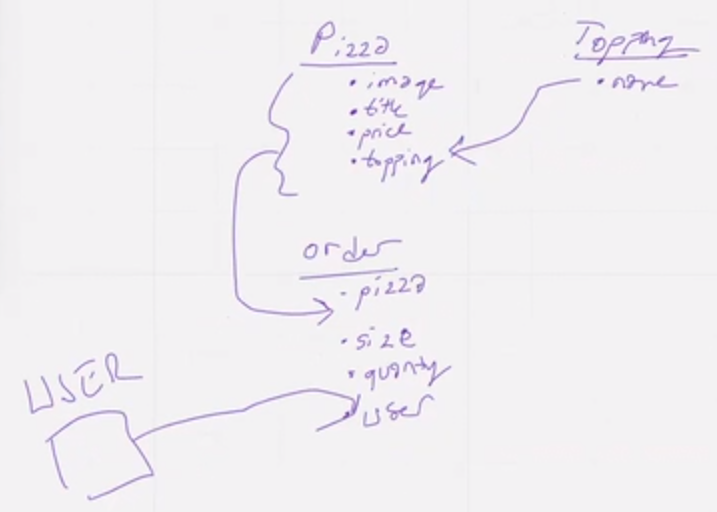 Pizza
• image
• title
• price
• topping
Topping
• name
order
• pizza
• size
• quantity
• user
USER